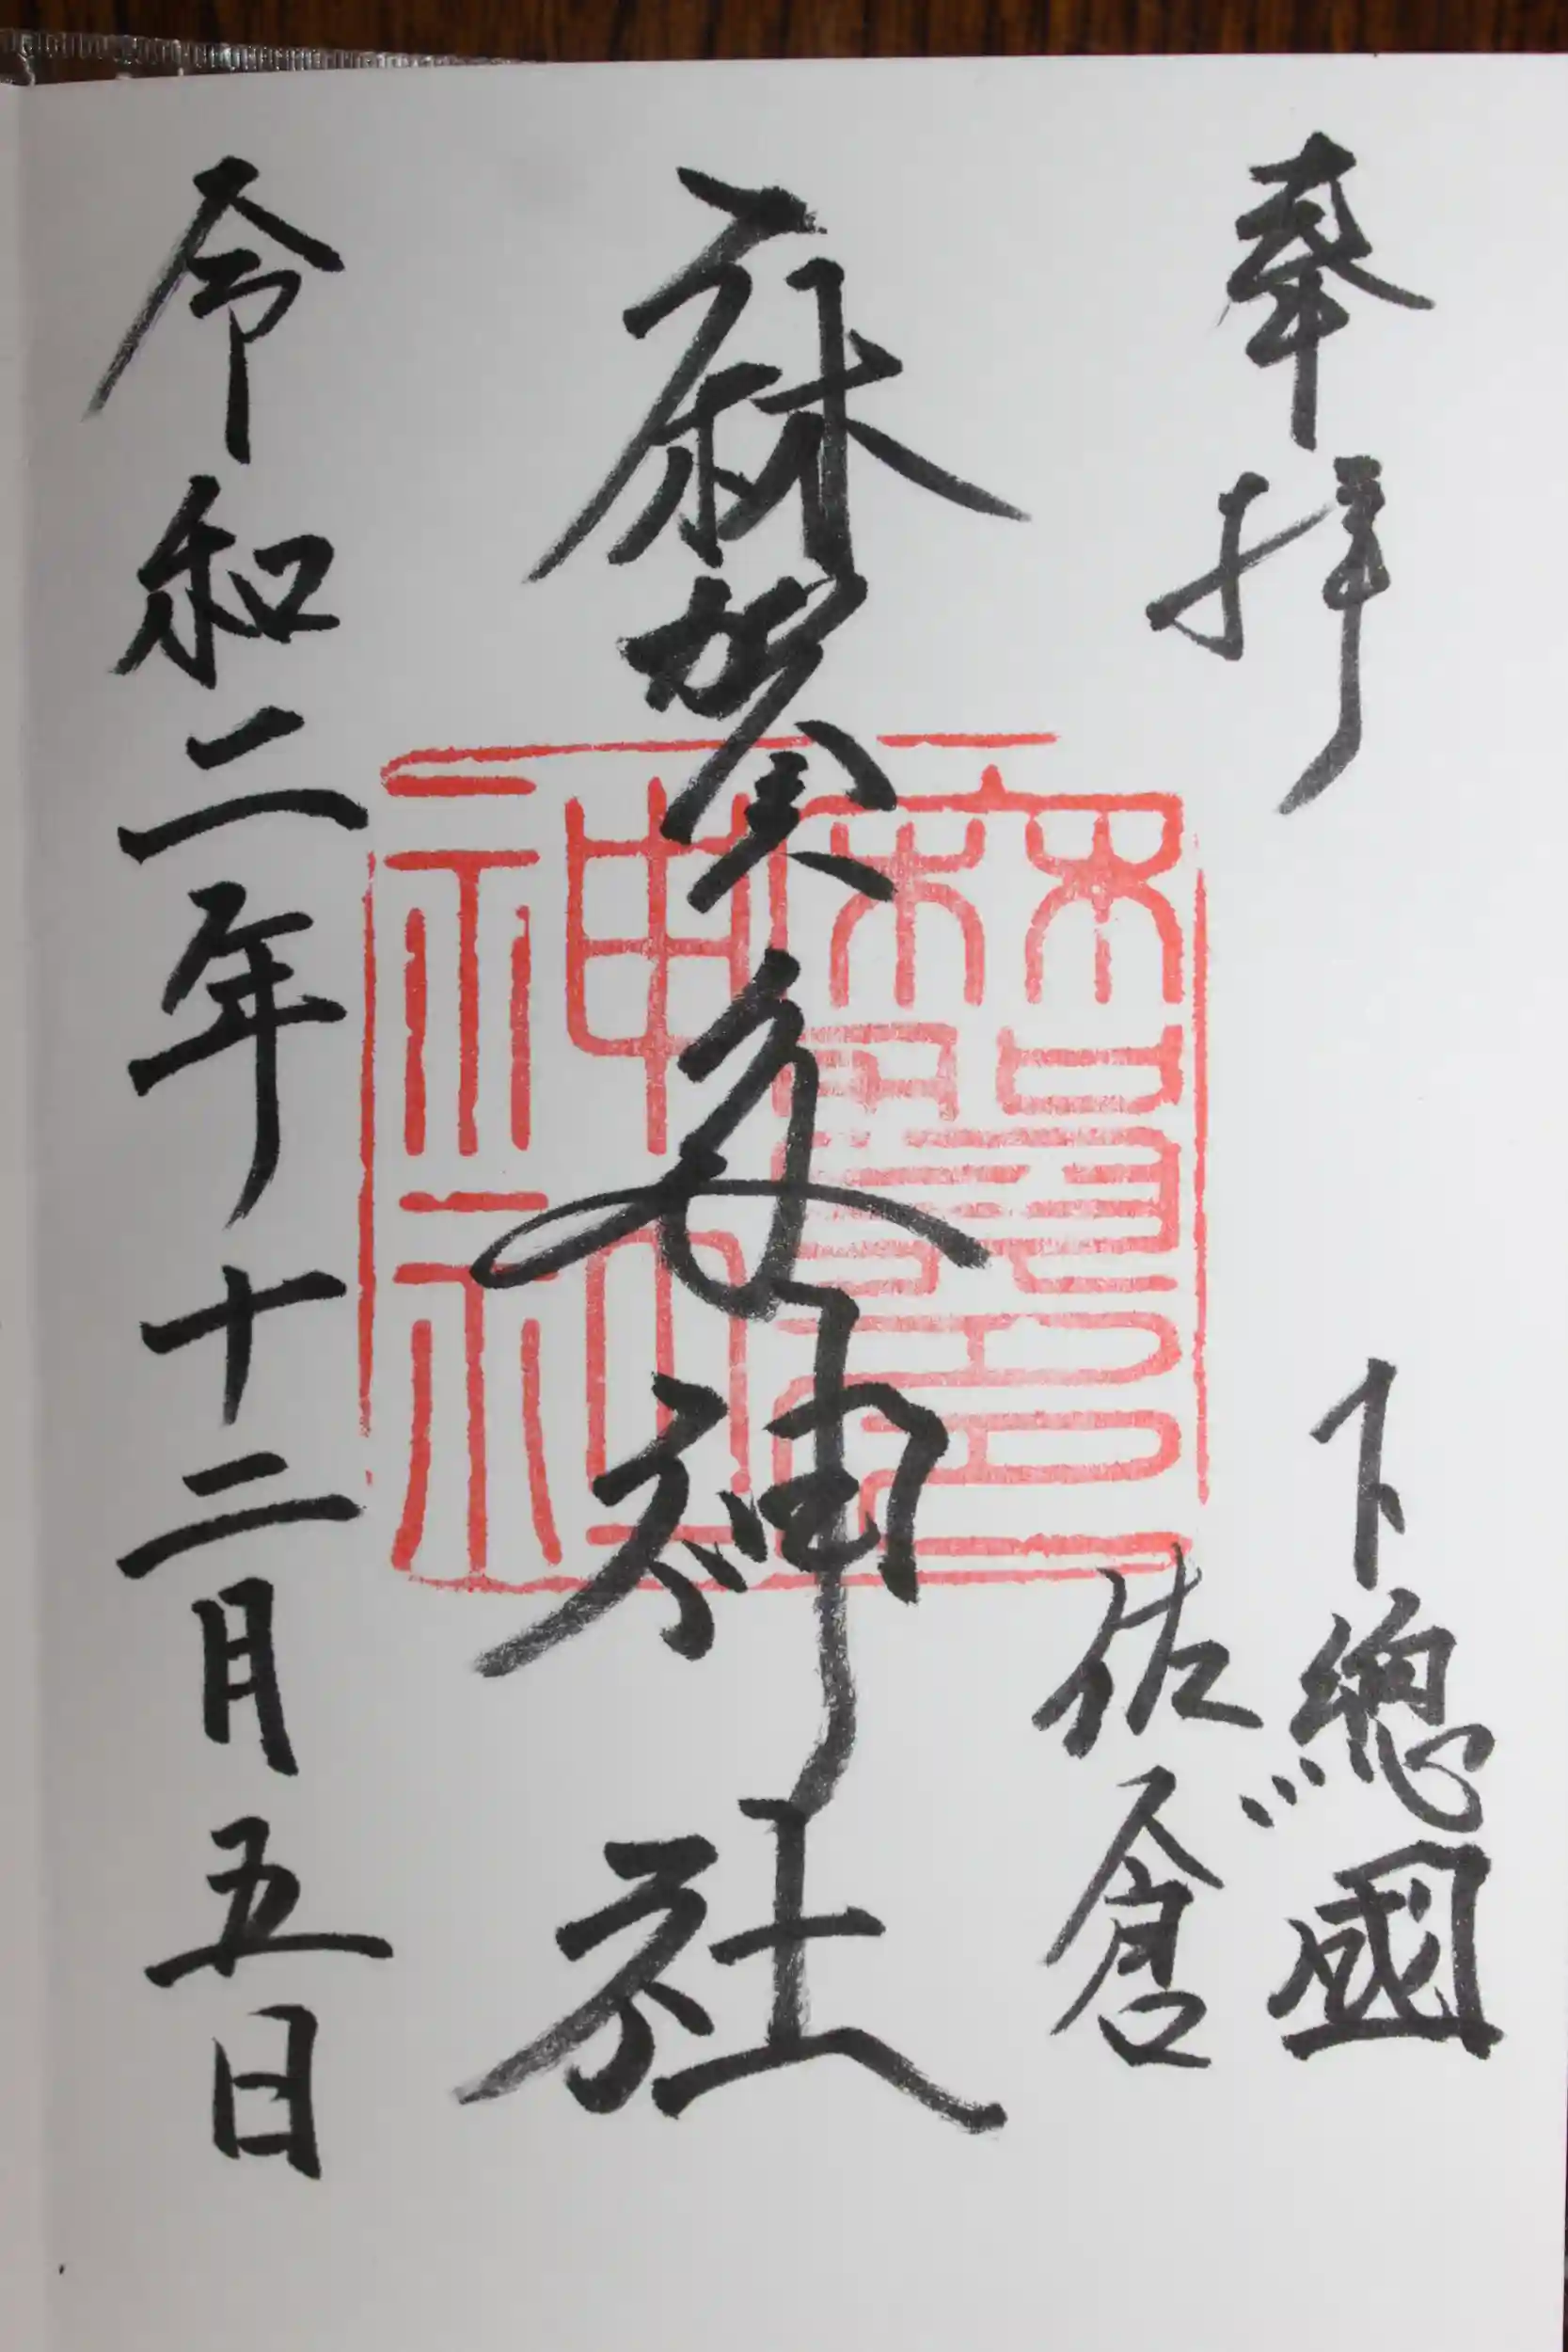 奉拝
下總國
佐倉
麻賀多神社
麻賀多
神社
令和二年十二月五日